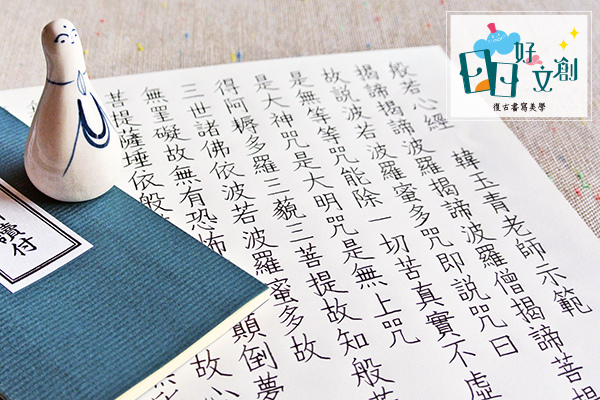 般若心經 韓玉青老師示範
揭諦揭諦波羅揭諦波羅僧揭諦菩提
故說波若波羅蜜多咒即說咒曰
是無等等咒能除一切苦真實不虛
是大神咒是大明咒是無上咒
得阿耨多羅三藐三菩提故知般若
三世諸佛依波若波羅蜜多故
無罣礙故無有恐怖 顛倒夢
菩提薩埵依般 故心
讀付
好文創
復古書寫美學